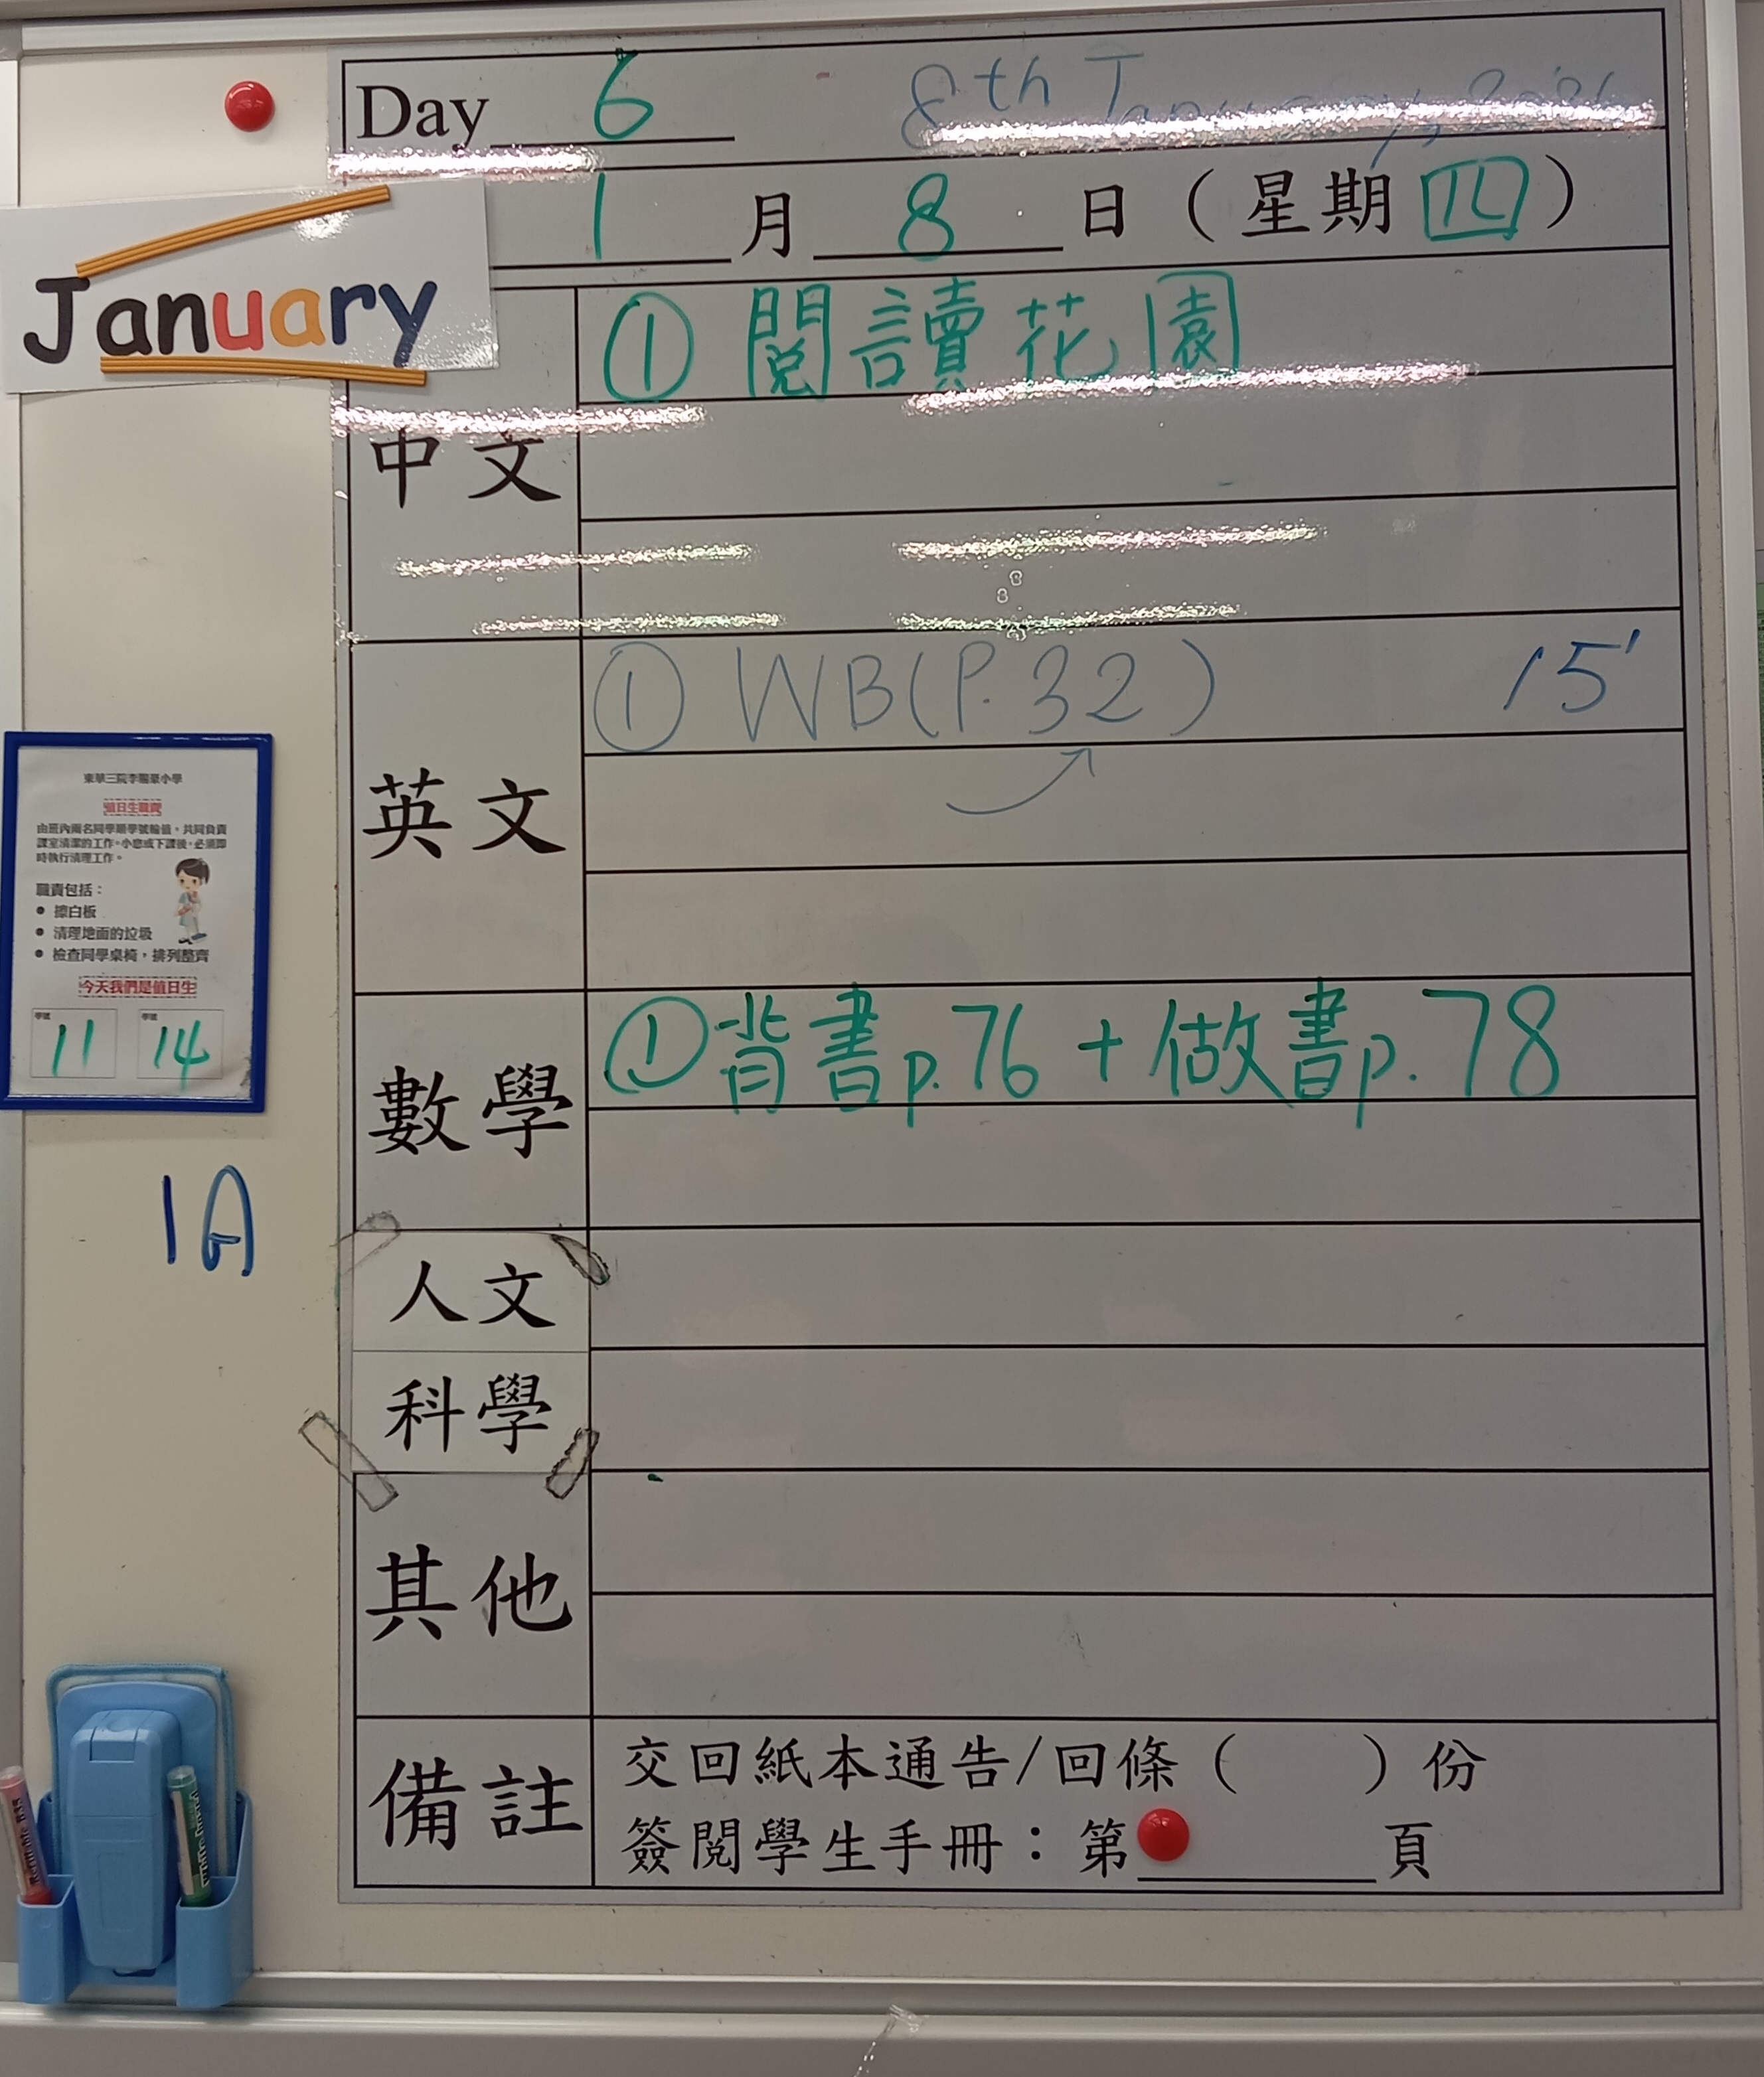 Day 6 8th January, 2026
January
1 月 8 日 ( 星期 四 )
中文
① 閱讀花園
英文
① WB(P.32) 15'
數學
① 背書p.76 + 做書p.78
人文
科學
其他
備註
交回紙本通告/回條 ( ) 份
簽閱學生手冊：第 頁
東華三院李賜豪小學
值日生職責
由班內兩名同學順學號輪值，共同負責
課室清潔的工作。小息或下課後，必須即
時執行清理工作。
職責包括：
● 擦白板
● 清理地面的垃圾
● 檢查同學桌椅，排列整齊
今天我們是值日生
學號 學號
11 14
1A